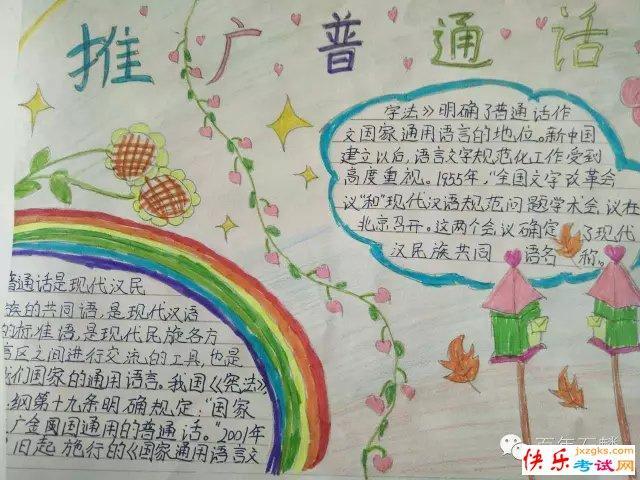 推广普通话
普通话是现代汉民
族的共同语,是现代汉语
的标准语,是现代民族各方
言区之间进行交流的工具,也是
我们国家的通用语言。我国《宪法》
纲第十九条明确规定:“国家
广全国国通用的普通话。”2001年
日起施行的《国家通用语言文
字法》明确了普通话作
文国家通用语言的地位。新中国
建立以后,语言文字规范化工作受到
高度重视。1955年,“全国文字改革会
议”和”现代汉语规范问题学术会议在
北京召开。这两个会议确定了现代
汉民族共同语名称。
百年石麟
快乐考试网
jxzgks.com